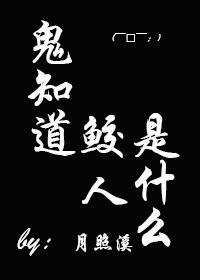 (￣□￣;)
鬼知道
鲛人
是什么
by：月照溪